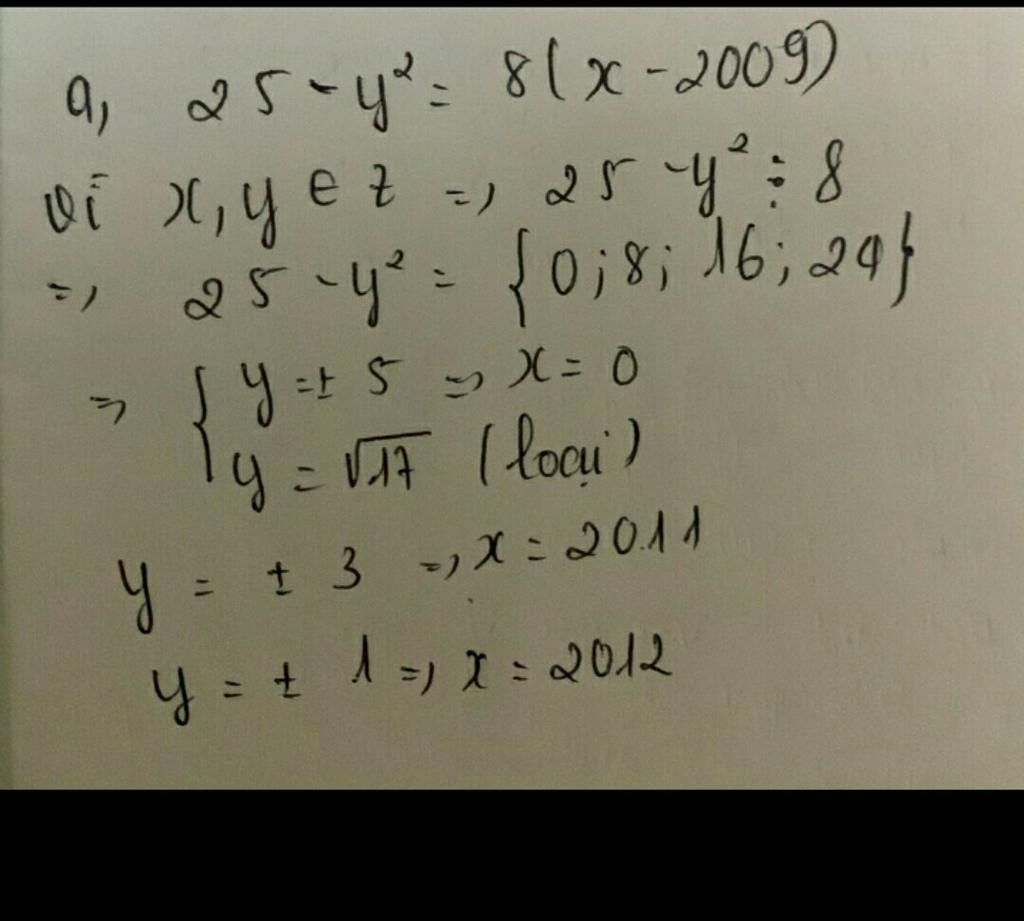 a, 25 - y² = 8(x - 2009)
vì x, y ∈ Z => 25 - y² ⋮ 8
=> 25 - y² = {0; 8; 16; 24}
=> { y = ± 5 => x = 0
y = √17 (loại)
y = ± 3 => x = 2011
y = ± 1 => x = 2012